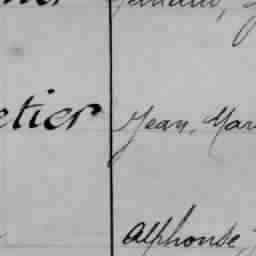 etier Jean, Mar
Alphonse,